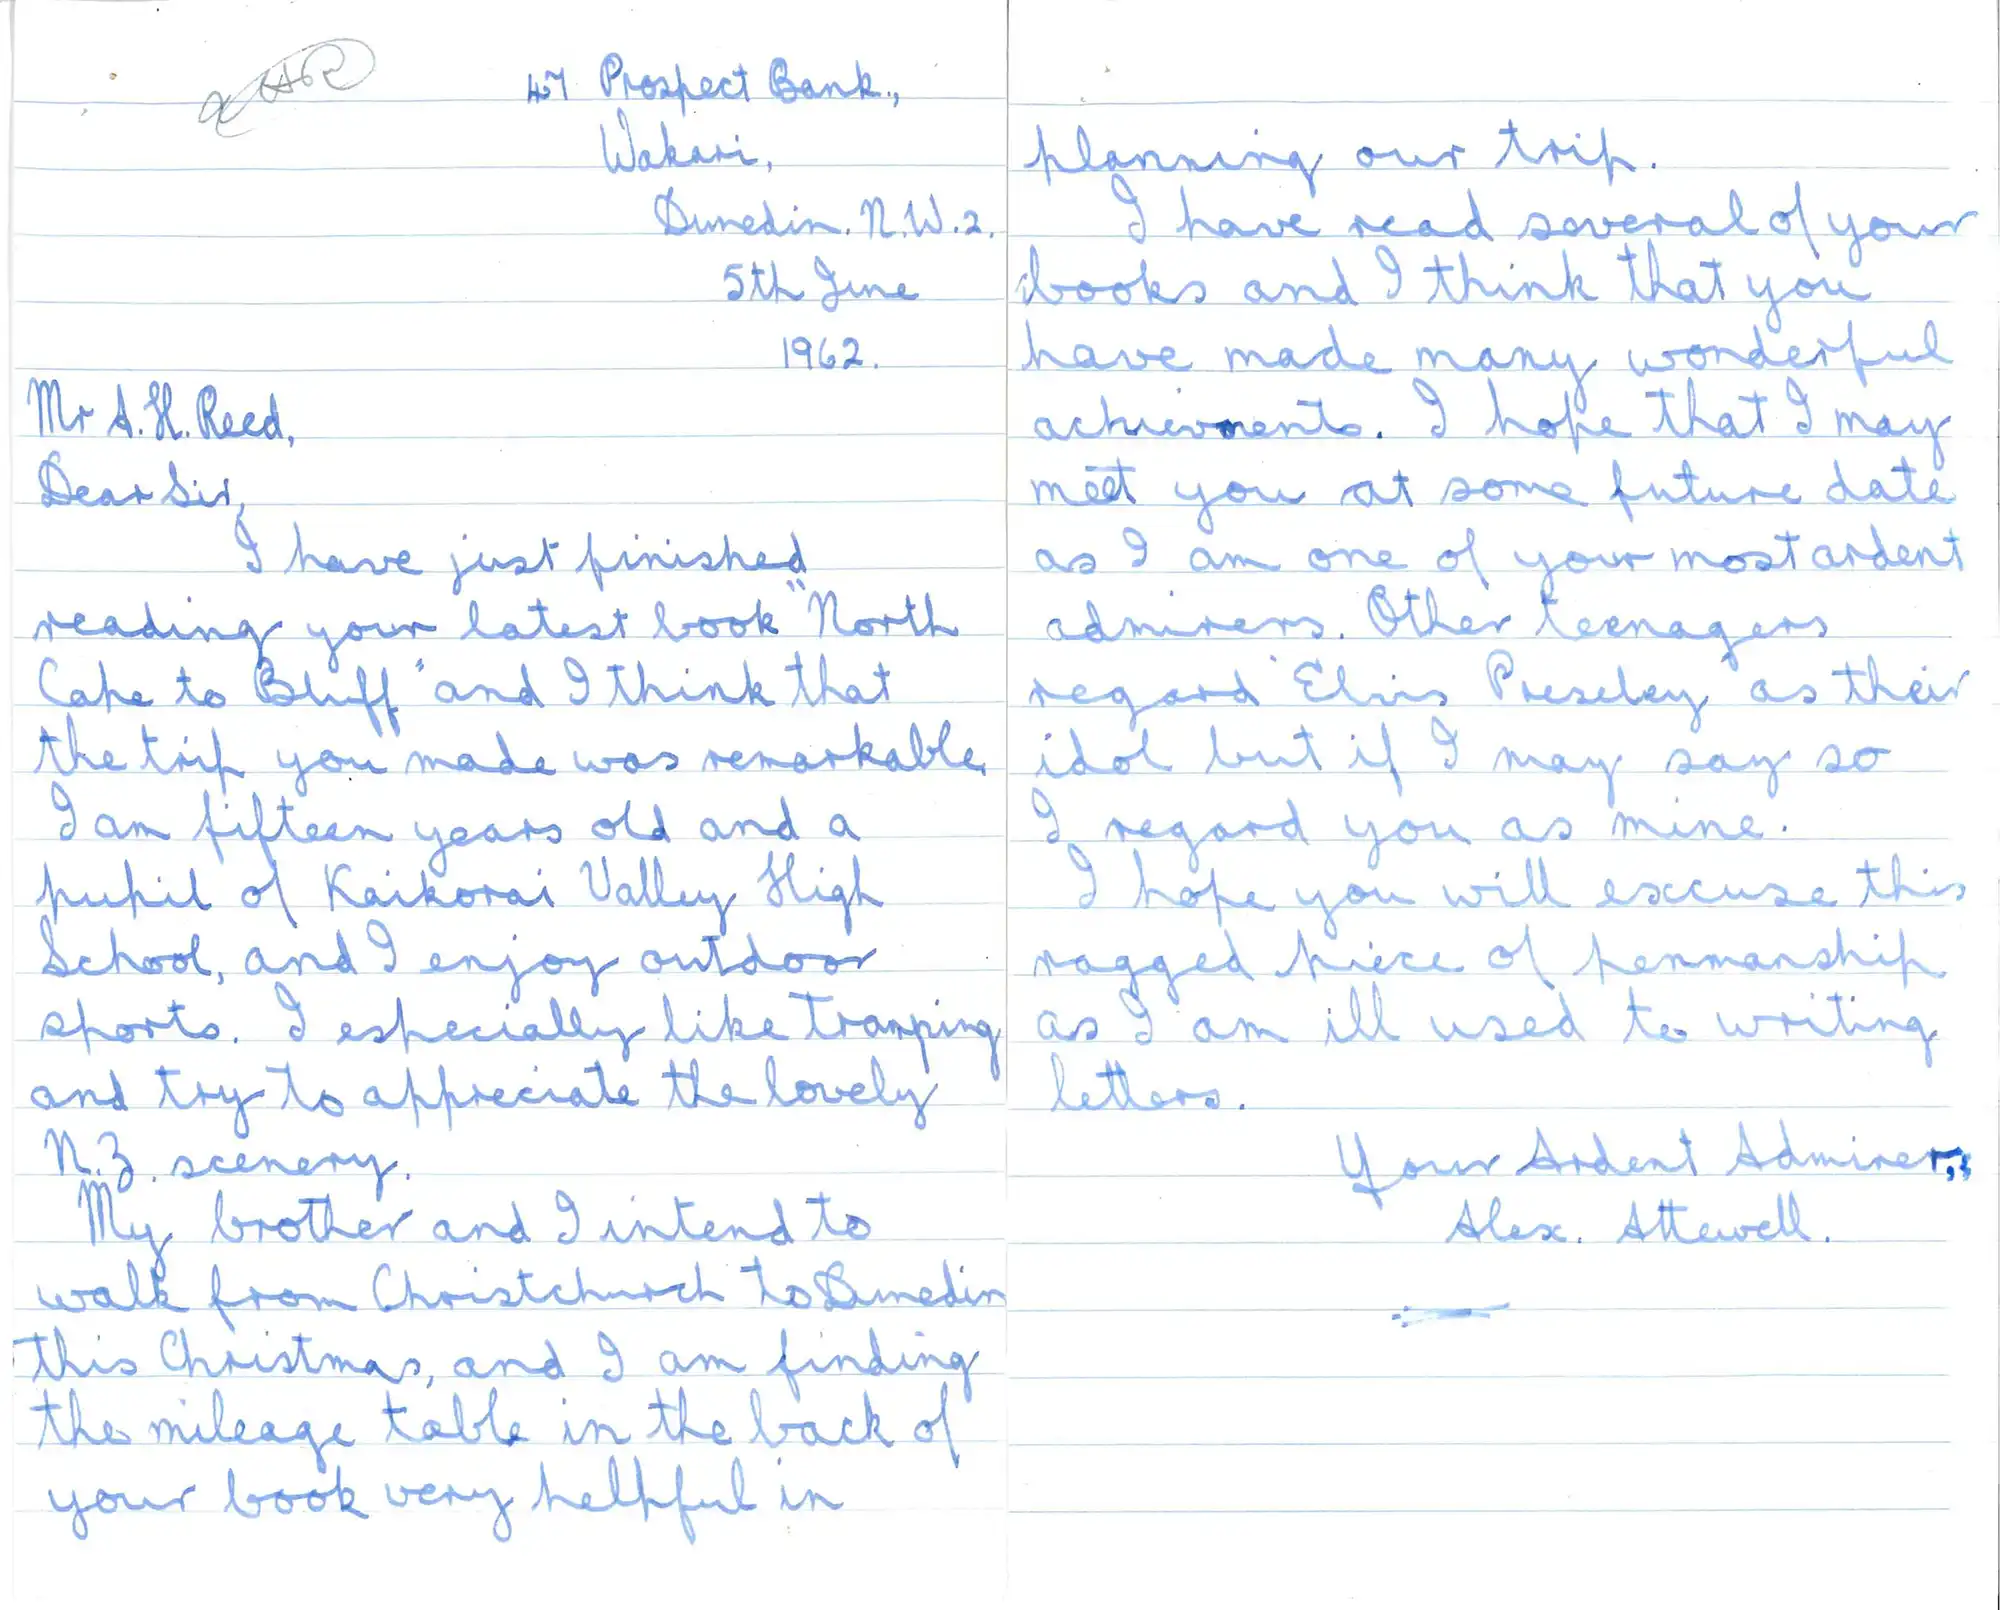 47 Prospect Bank.,
Wakari,
Dunedin. N.W.2.
5th June
1962.
Mr A.H. Reed,
Dear Sir,
I have just finished
reading your latest book "North
Cape to Bluff" and I think that
the trip you made was remarkable.
I am fifteen years old and a
pupil of Kaikorai Valley High
School, and I enjoy outdoor
sports. I especially like tramping
and try to appreciate the lovely
N.Z. scenery.
My brother and I intend to
walk from Christchurch to Dunedin
this Christmas, and I am finding
the mileage table in the back of
your book very helpful in
planning our trip.
I have read several of your
books and I think that you
have made many wonderful
achievments. I hope that I may
meet you at some future date
as I am one of your most ardent
admirers. Other teenagers
regard "Elvis Preseley" as their
idol but if I may say so
I regard you as mine.
I hope you will excuse this
ragged piece of penmanship
as I am ill used to writing
letters.
Your Ardent Admirer,,
Alex. Attewell.